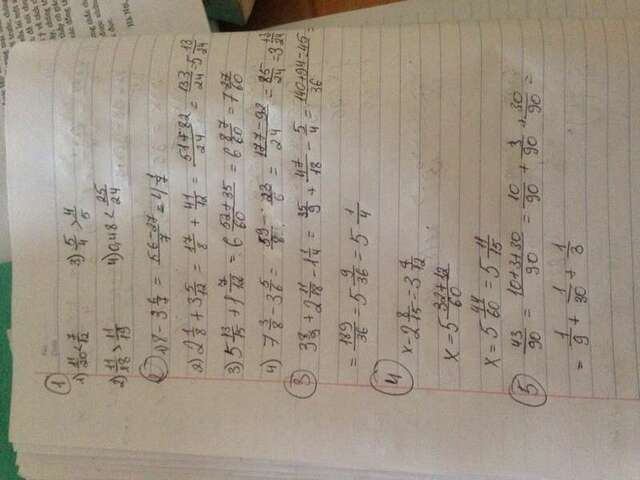 1
1) 11/20 < 7/12 3) 5/4 > 4/5
2) 11/18 > 11/19 4) 0,48 < 25/24
2 1) 8 - 3 6/7 = (56-27)/7 = 4 1/7
2) 2 1/8 + 3 5/12 = 17/8 + 41/12 = (51+82)/24 = 133/24 = 5 13/24
3) 5 13/15 + 1 7/12 = 6 (52+35)/60 = 6 87/60 = 7 27/60
4) 7 3/8 - 3 5/6 = 59/8 - 23/6 = (177-92)/24 = 85/24 = 3 13/24
3 3 8/9 + 2 11/18 - 1 1/4 = 35/9 + 47/18 - 5/4 = (140+94-45)/36 =
= 189/36 = 5 9/36 = 5 1/4
4
x - 2 8/15 = 3 4/12
x = 5 (32+12)/60
x = 5 44/60 = 5 11/15
5 43/90 = (10+3+30)/90 = 10/90 + 3/90 + 30/90 =
= 1/9 + 1/30 + 1/3
Hà Nội,